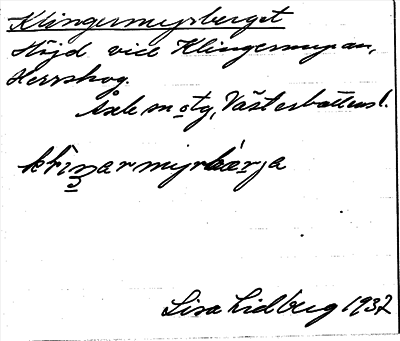 Klingermyrberget
Höjd vid Klingermyran,
Herrskog.
Åsele m otg, Västerbottens l.
Lisa Lidberg 1937